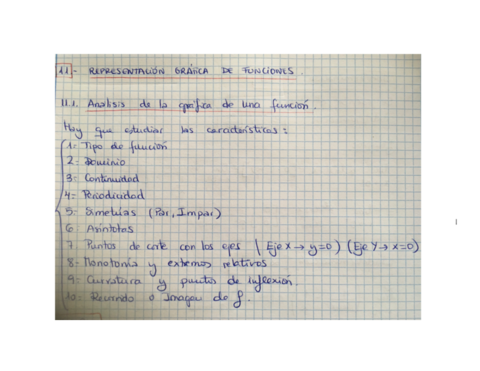 11.- REPRESENTACIÓN GRÁFICA DE FUNCIONES.
11.1. Analisis de la gráfica de una función.
Hay que estudiar las características:
1- Tipo de función
2- Dominio
3- Continuidad
4- Periodicidad
5- Simetrías (Par, Impar)
6 Asíntotas
7. Puntos de corte con los ejes ( Eje X → y=0) (Eje Y → x=0)
8- Monotonía y extremos relativos
9- Curvatura y puntos de inflexión.
10- Recorrido o Imagen de f.